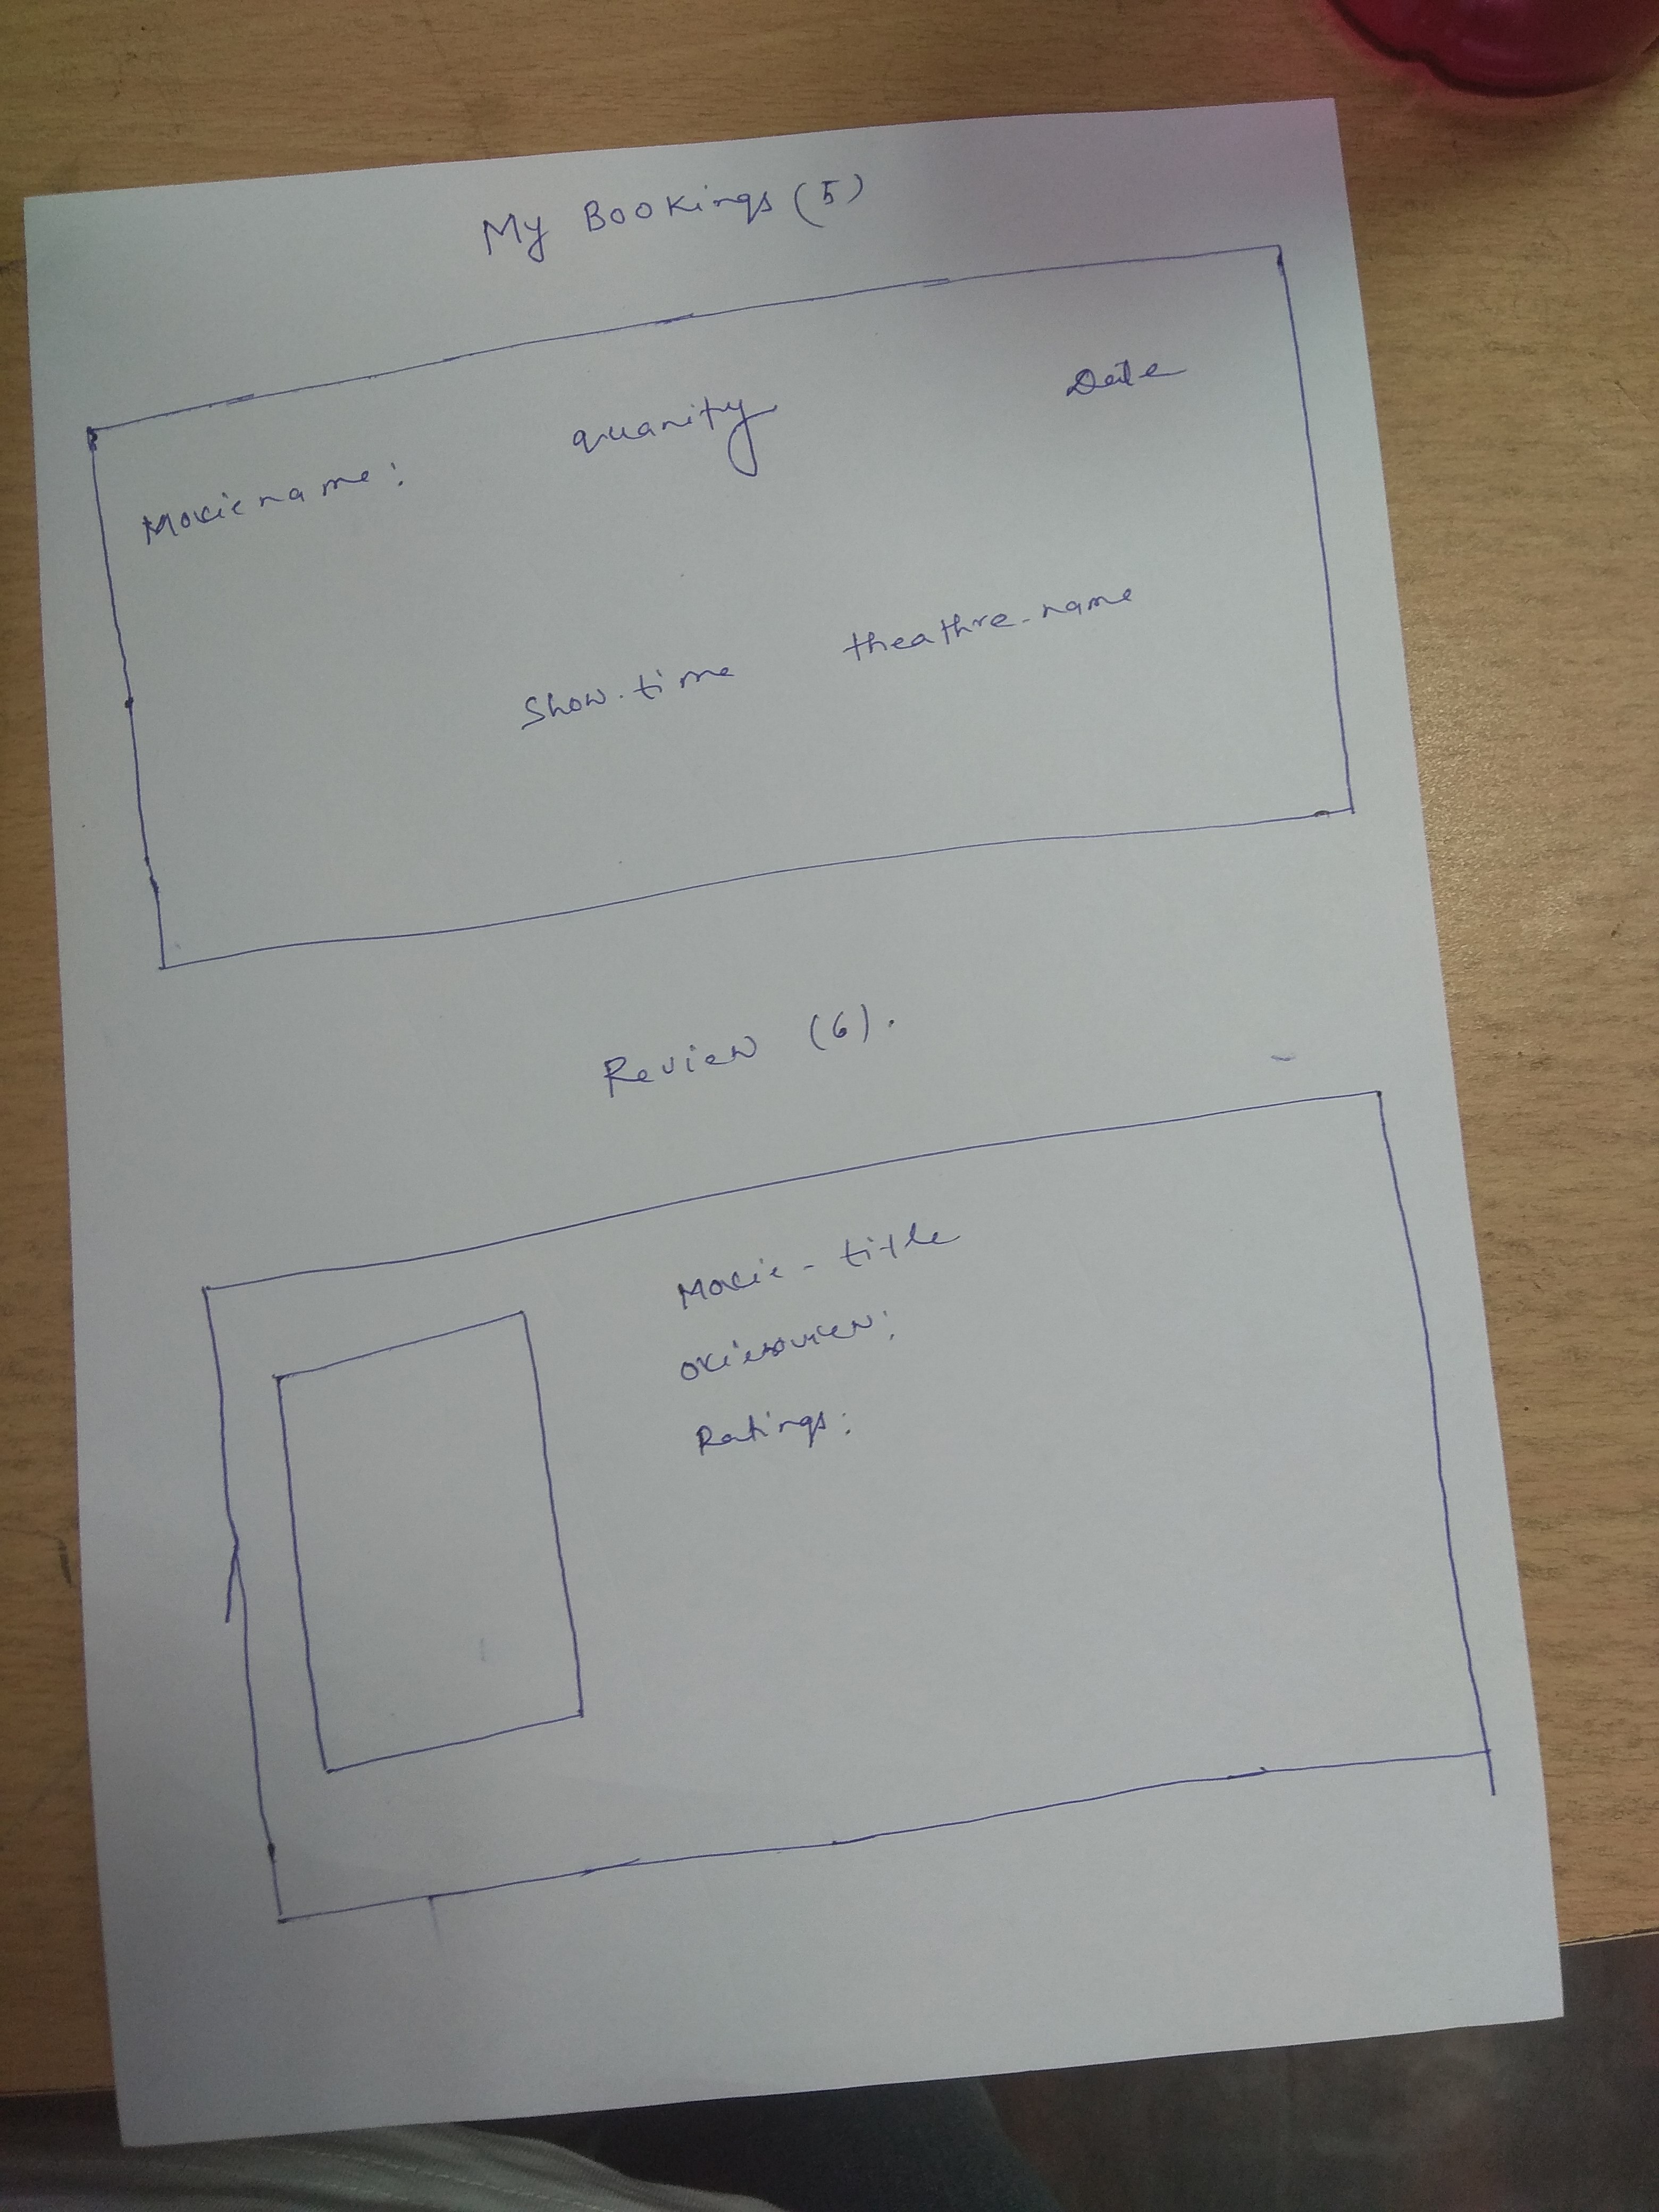 My Bookings (5)
Movie name : quanity Date
Show.time theathre_name
Review (6).
Movie - title
Ratings :